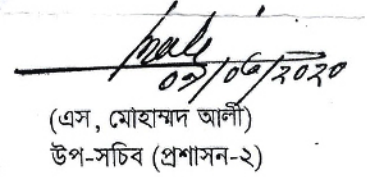 ০৯/০৬/২০২০
(এস, মোহাম্মদ আলী)
উপ-সচিব (প্রশাসন-২)